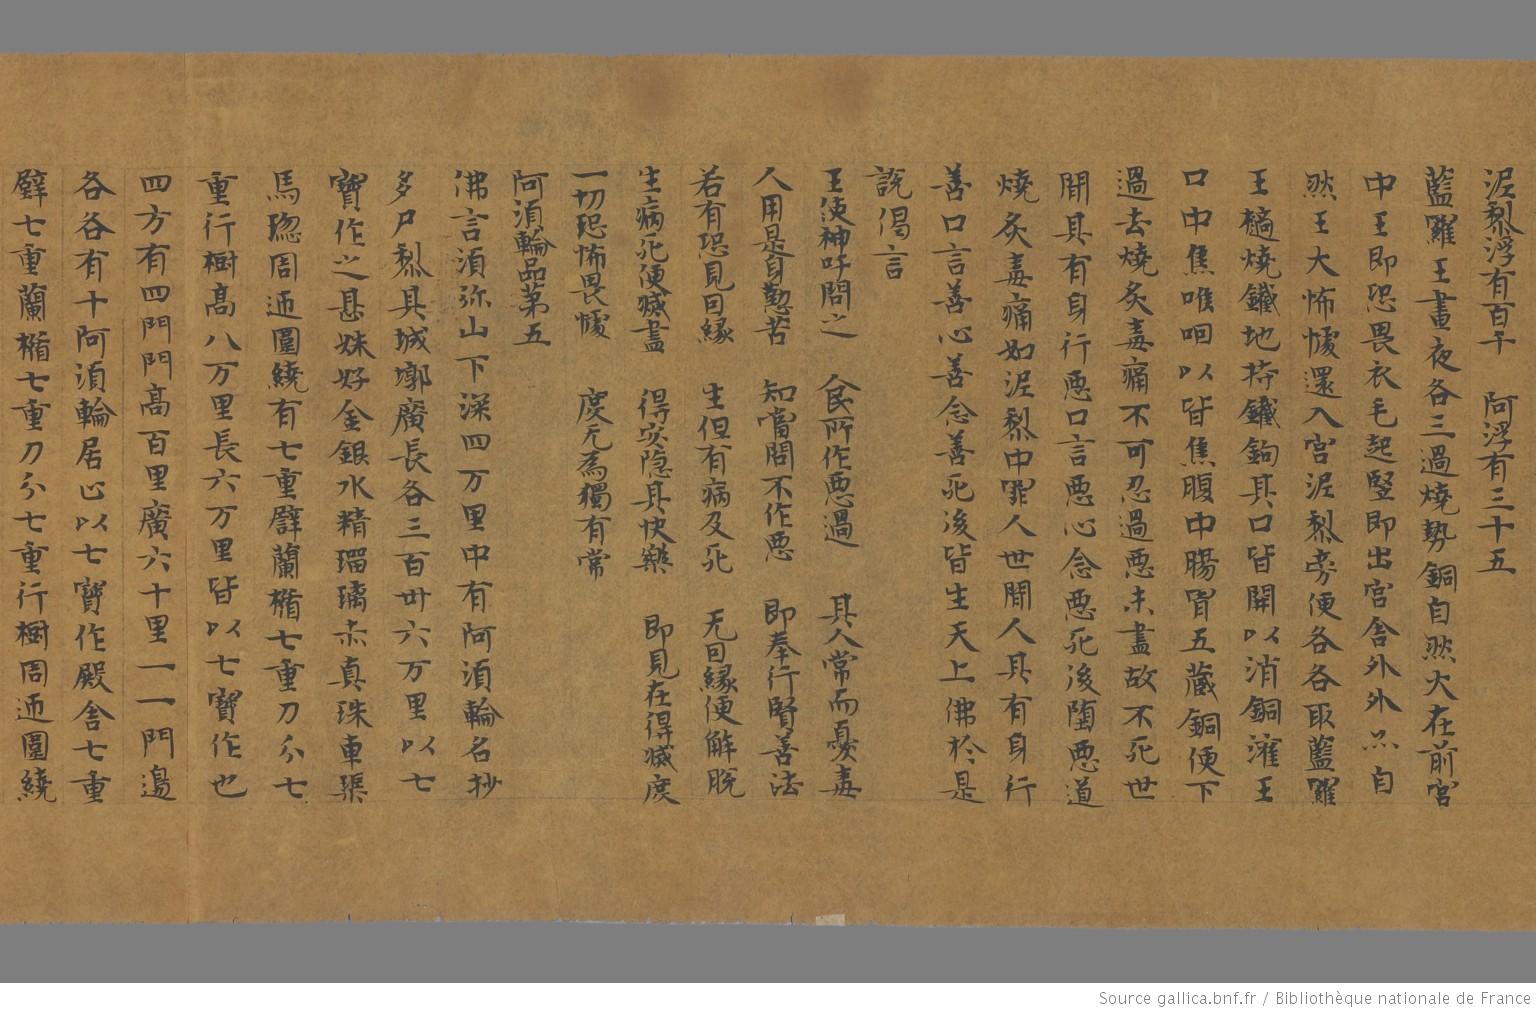 泥梨浮有百千　阿浮有三十五
藍羅王晝夜各三過燒熱銅自然火在前宮
中王即恐畏衣毛起竪即出宮舍外外亦自
然王大怖懅還入宮泥梨旁便各各取藍羅
王擿燒鐵地持鐵鉤其口皆開以消銅灌王
口中焦唯咽以皆焦腹中腸胃五藏銅便下
過去燒炙毒痛不可忍過惡未盡故不死世
間其有身行惡口言惡心念惡死後墮惡道
燒炙毒痛如泥梨中罪人世間人其有身行
善口言善心善念善死後皆生天上佛於是
說偈言
王使神呼問之　民所作惡過　其人常而憂毒
人用是身懃苦　知當問不作惡　即奉行賢善法
若有恐見因緣　生但有病及死　无因緣便解脫
生病死便滅盡　得安隱其快樂　即見在得滅度
一切恐怖畏懅　度无為獨有常
阿須輪品第五
佛言須弥山下深四万里中有阿須輪名抄
多尸梨其城墎廣長各三百卅六万里以七
寶作之甚姝好金銀水精瑠璃赤真珠車𤦲
馬瑙周迊圍繞有七重壁蘭楯七重刀分七
重行樹高八万里長六万里皆以七寶作也
四方有四門門高百里廣六十里一一門邊
各各有十阿須輪居止以七寶作殿舍七重
壁七重蘭楯七重刀分七重行樹周迊圍繞
Source gallica.bnf.fr / Bibliothèque nationale de France